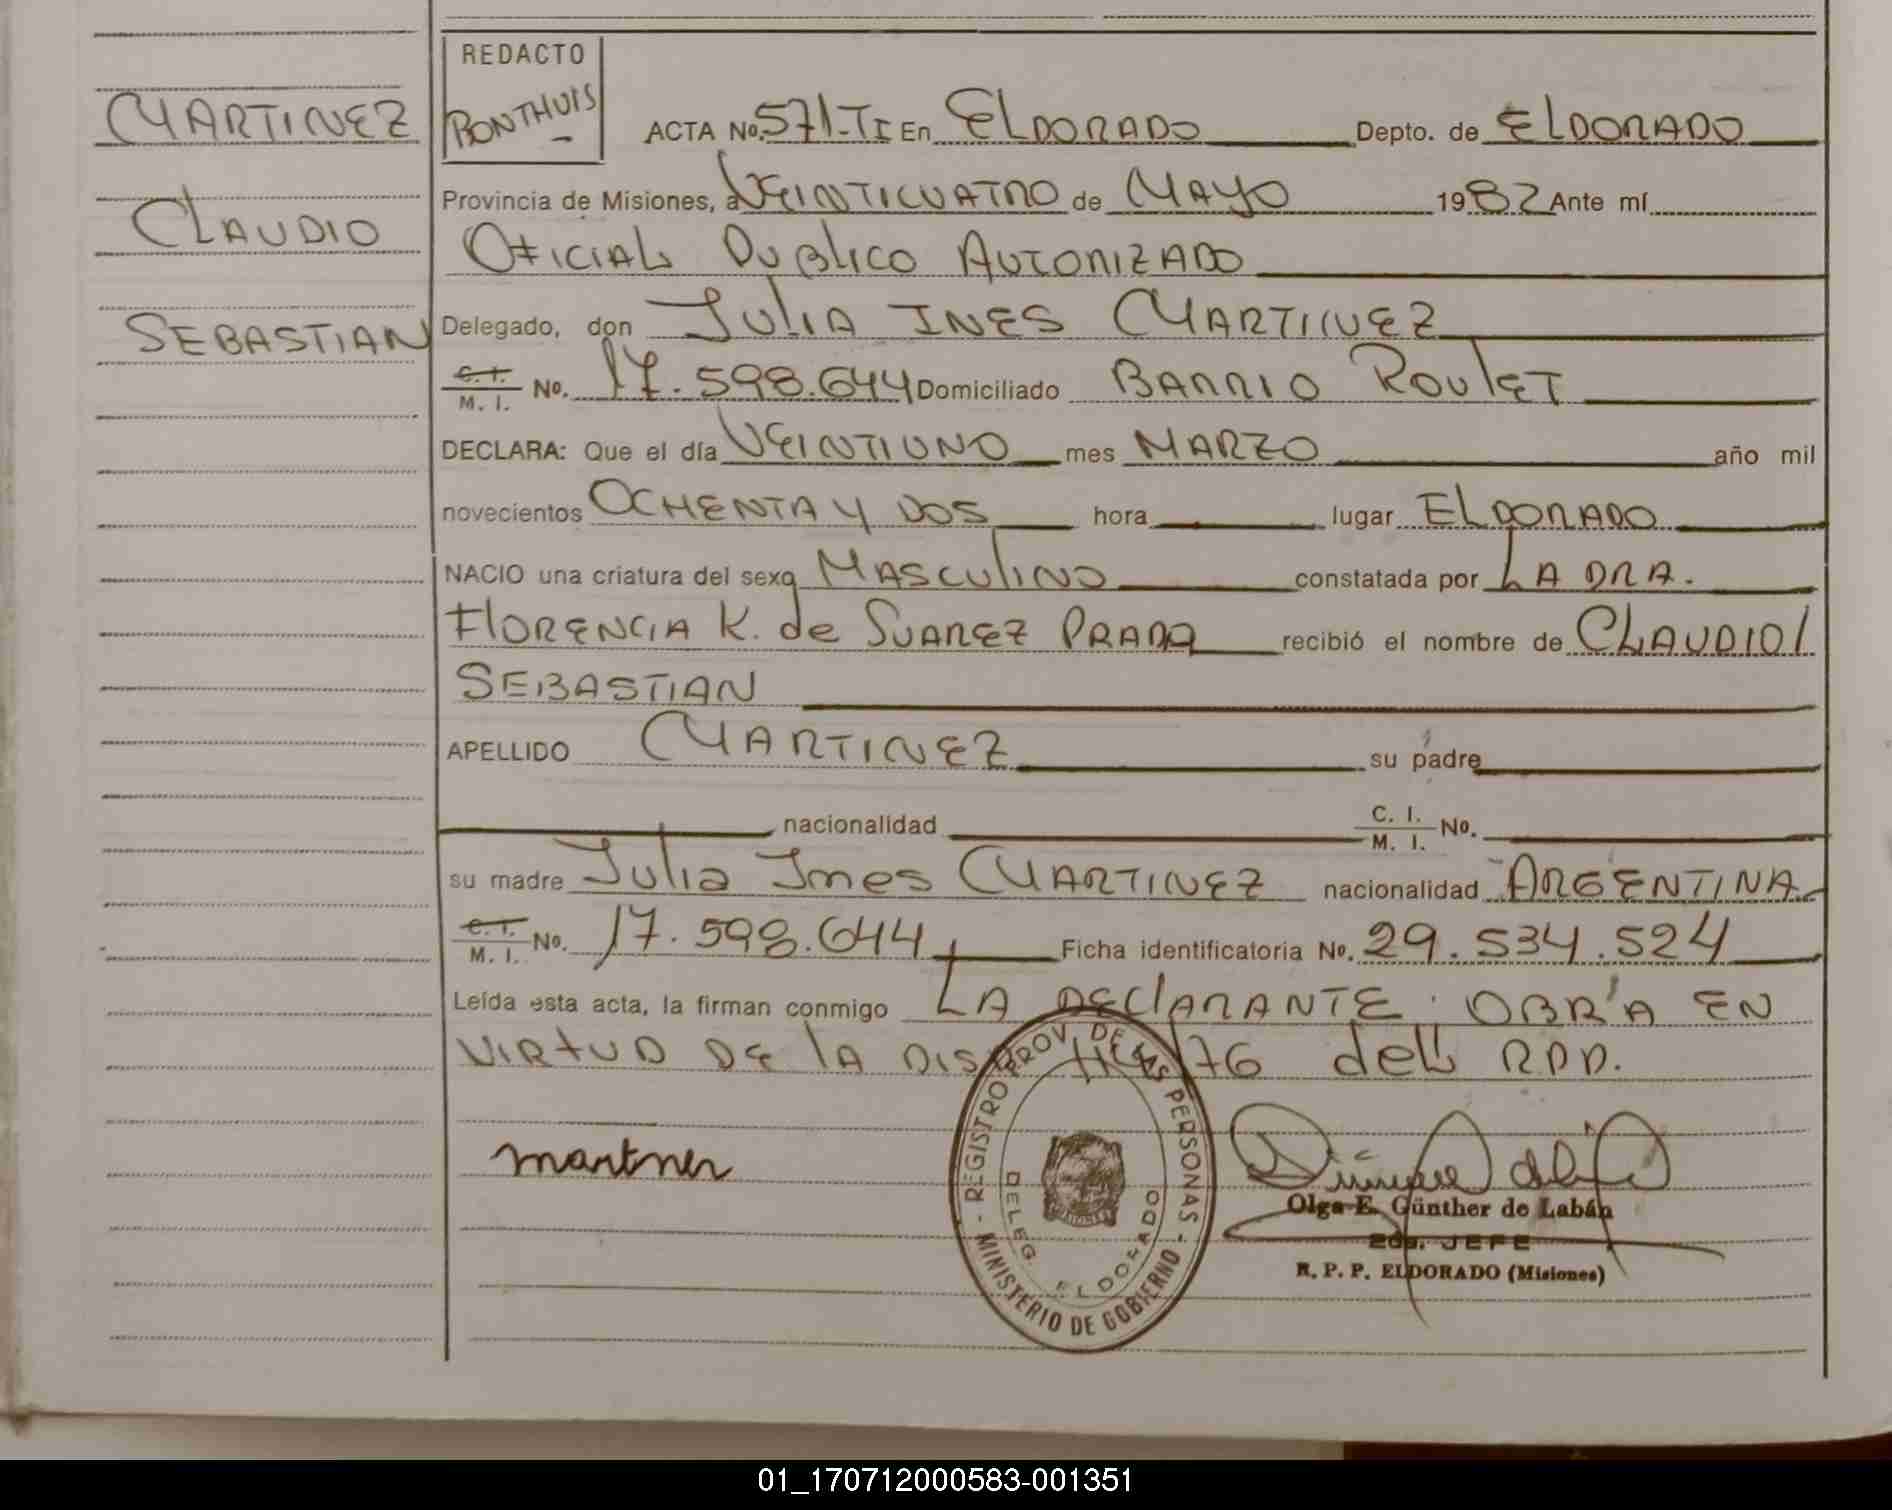 MARTINEZ
CLAUDIO
SEBASTIAN
REDACTO
BONTHUIS
ACTA No. 571-TI En ELDORADO Depto. de ELDORADO
Provincia de Misiones, a VEINTICUATRO de MAYO 1982 Ante mí
OFICIAL PUBLICO AUTORIZADO
Delegado, don JULIA INES MARTINEZ
C. I. M. I. No. 17.598.644 Domiciliado BARRIO ROULET
DECLARA: Que el día VEINTIUNO mes MARZO año mil
novecientos OCHENTA Y DOS hora lugar ELDORADO
NACIO una criatura del sexo MASCULINO constatada por LA DRA.
FLORENCIA K. de SUAREZ PRADA recibió el nombre de CLAUDIO/
SEBASTIAN
APELLIDO MARTINEZ su padre
nacionalidad C. I. M. I. No.
su madre Julia Ines MARTINEZ nacionalidad ARGENTINA
C. I. M. I. No. 17.598.644 Ficha identificatoria No. 29.534.524
Leída esta acta, la firman conmigo LA DECLARANTE. OBRA EN
VIRTUD DE LA DISP. /76 del RPP.
REGISTRO PROV. DE LAS PERSONAS - MINISTERIO DE GOBIERNO -
DELEG. ELDORADO
MISIONES
Olga E. Günther de Labán
2da. JEFE
R. P. P. ELDORADO (Misiones)
01_170712000583-001351